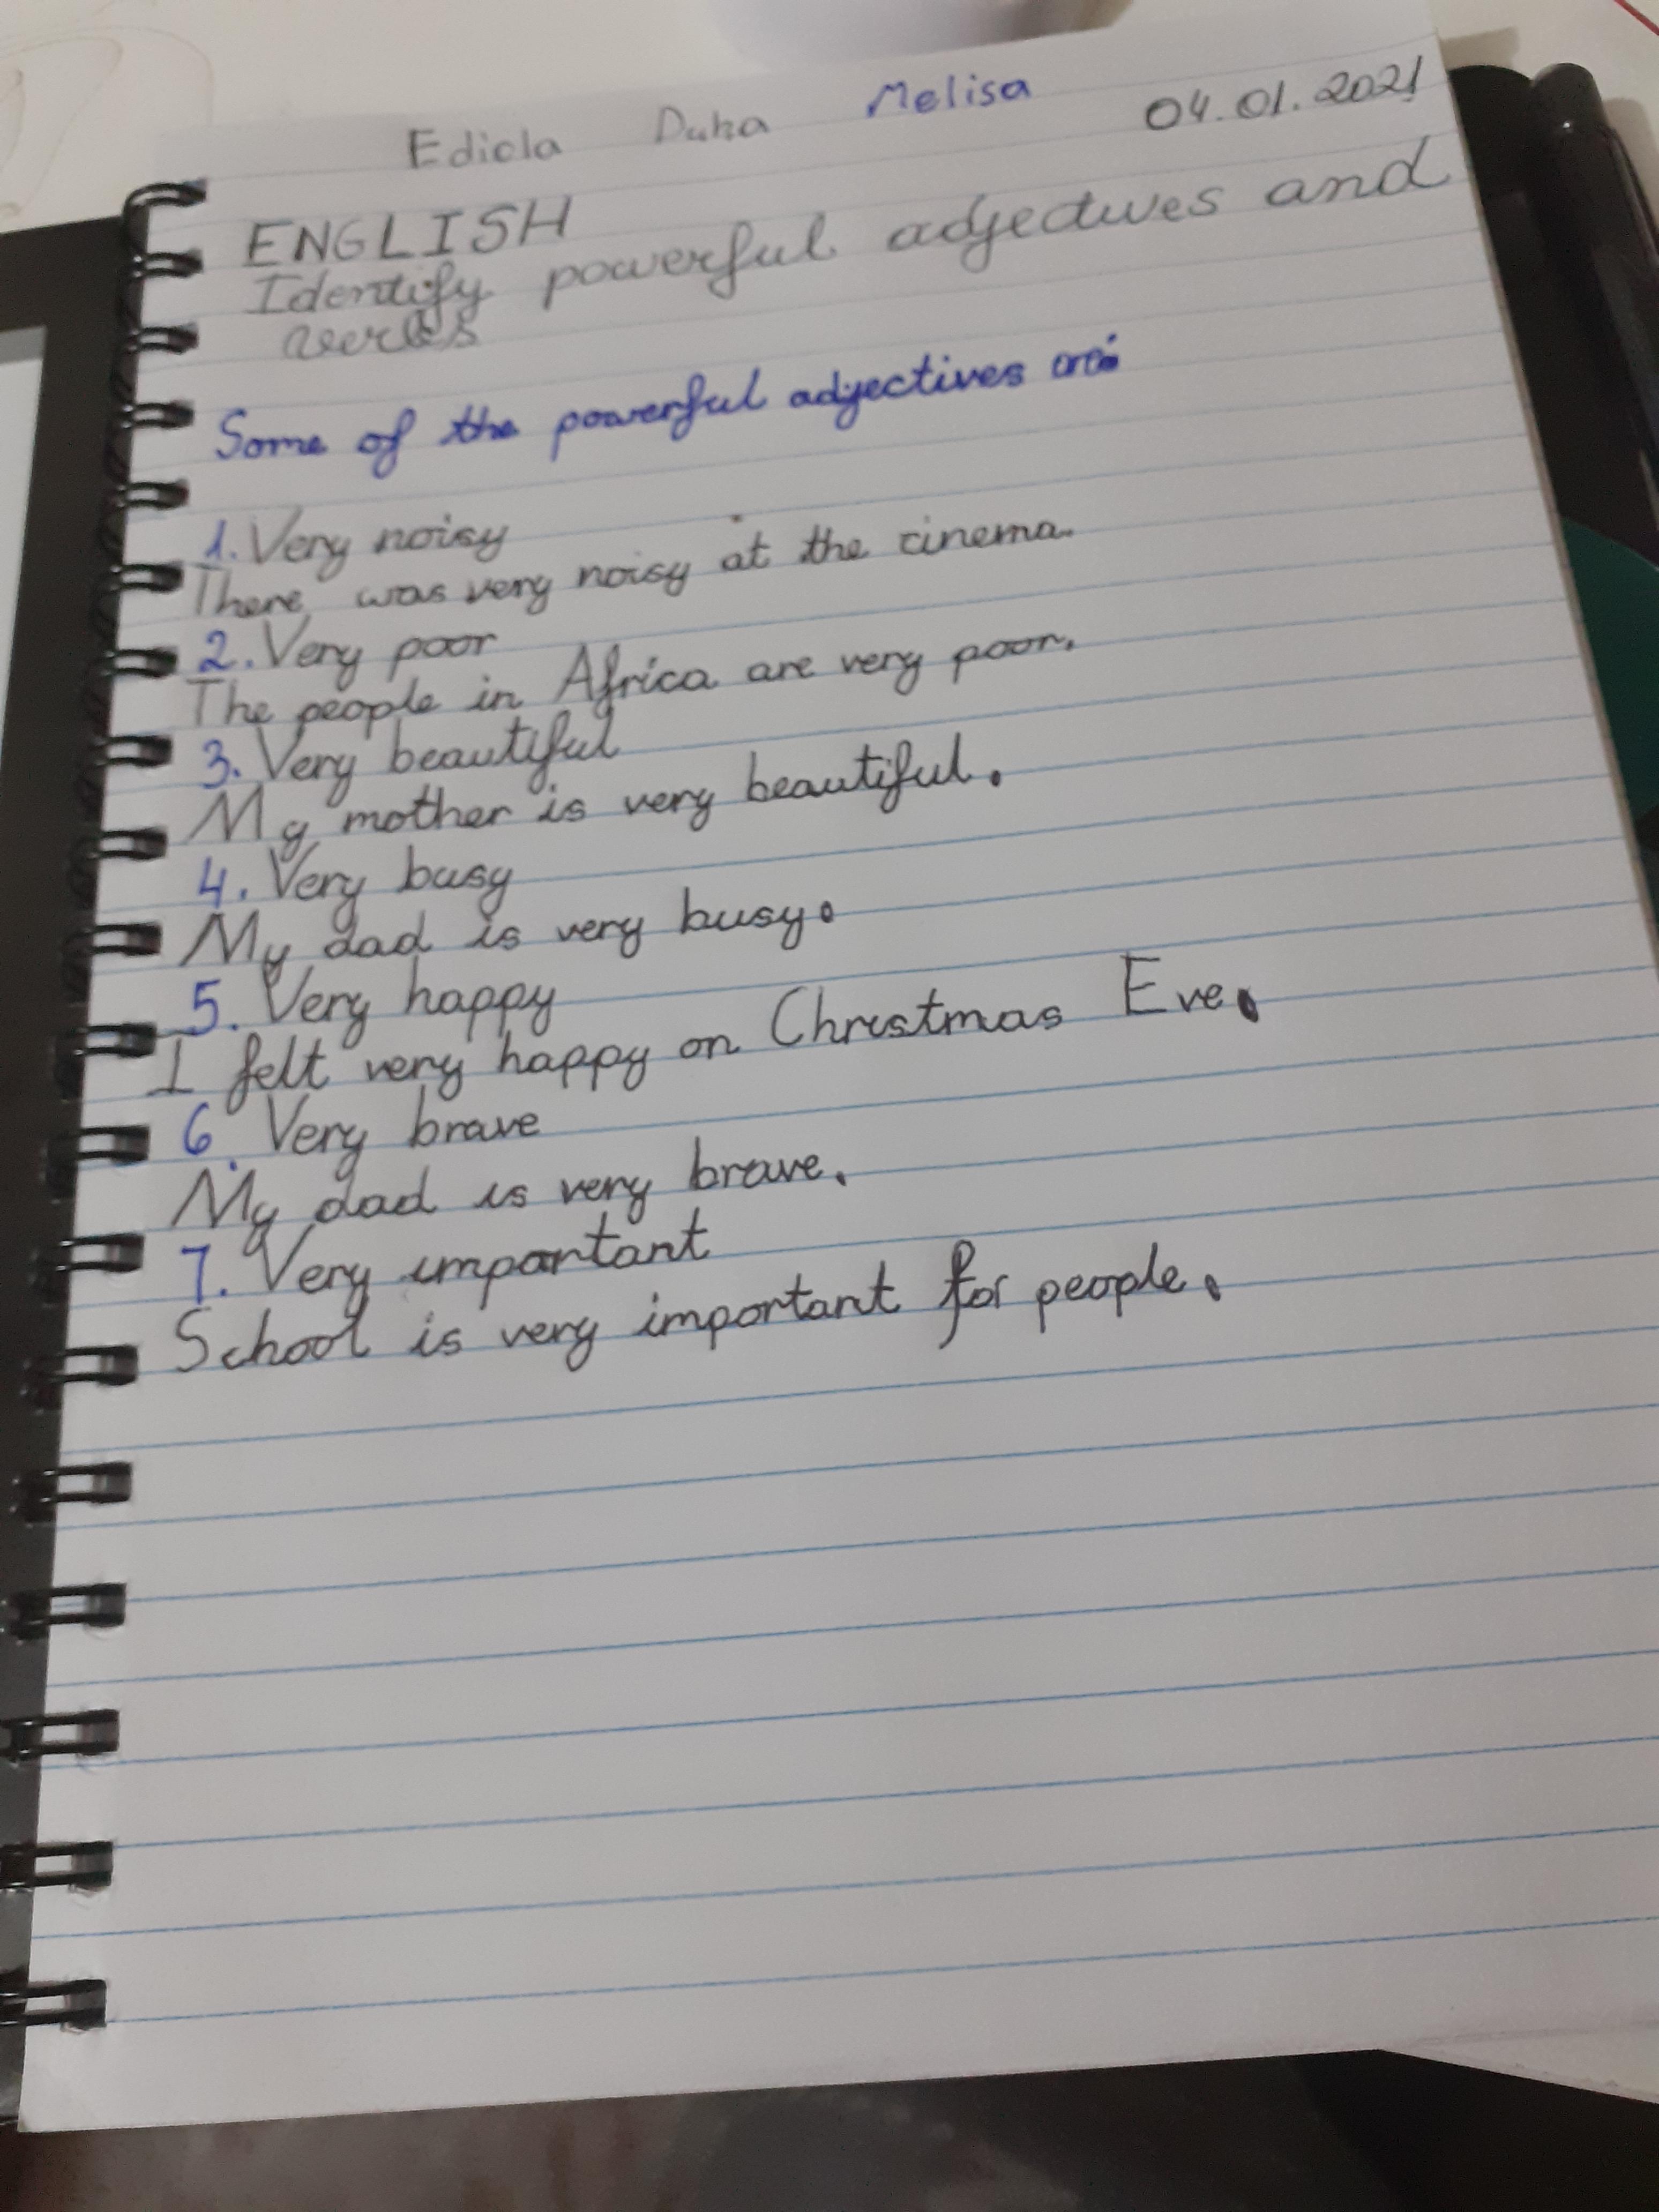 Ediola Duha Melisa 04.01.2021
ENGLISH
Identify powerful adjectives and
verbs
Some of the powerful adjectives are:
1. Very noisy
There was very noisy at the cinema.
2. Very poor
The people in Africa are very poor.
3. Very beautiful
My mother is very beautiful.
4. Very busy
My dad is very busy.
5. Very happy
I felt very happy on Christmas Eve.
6. Very brave
My dad is very brave.
7. Very important
School is very important for people.